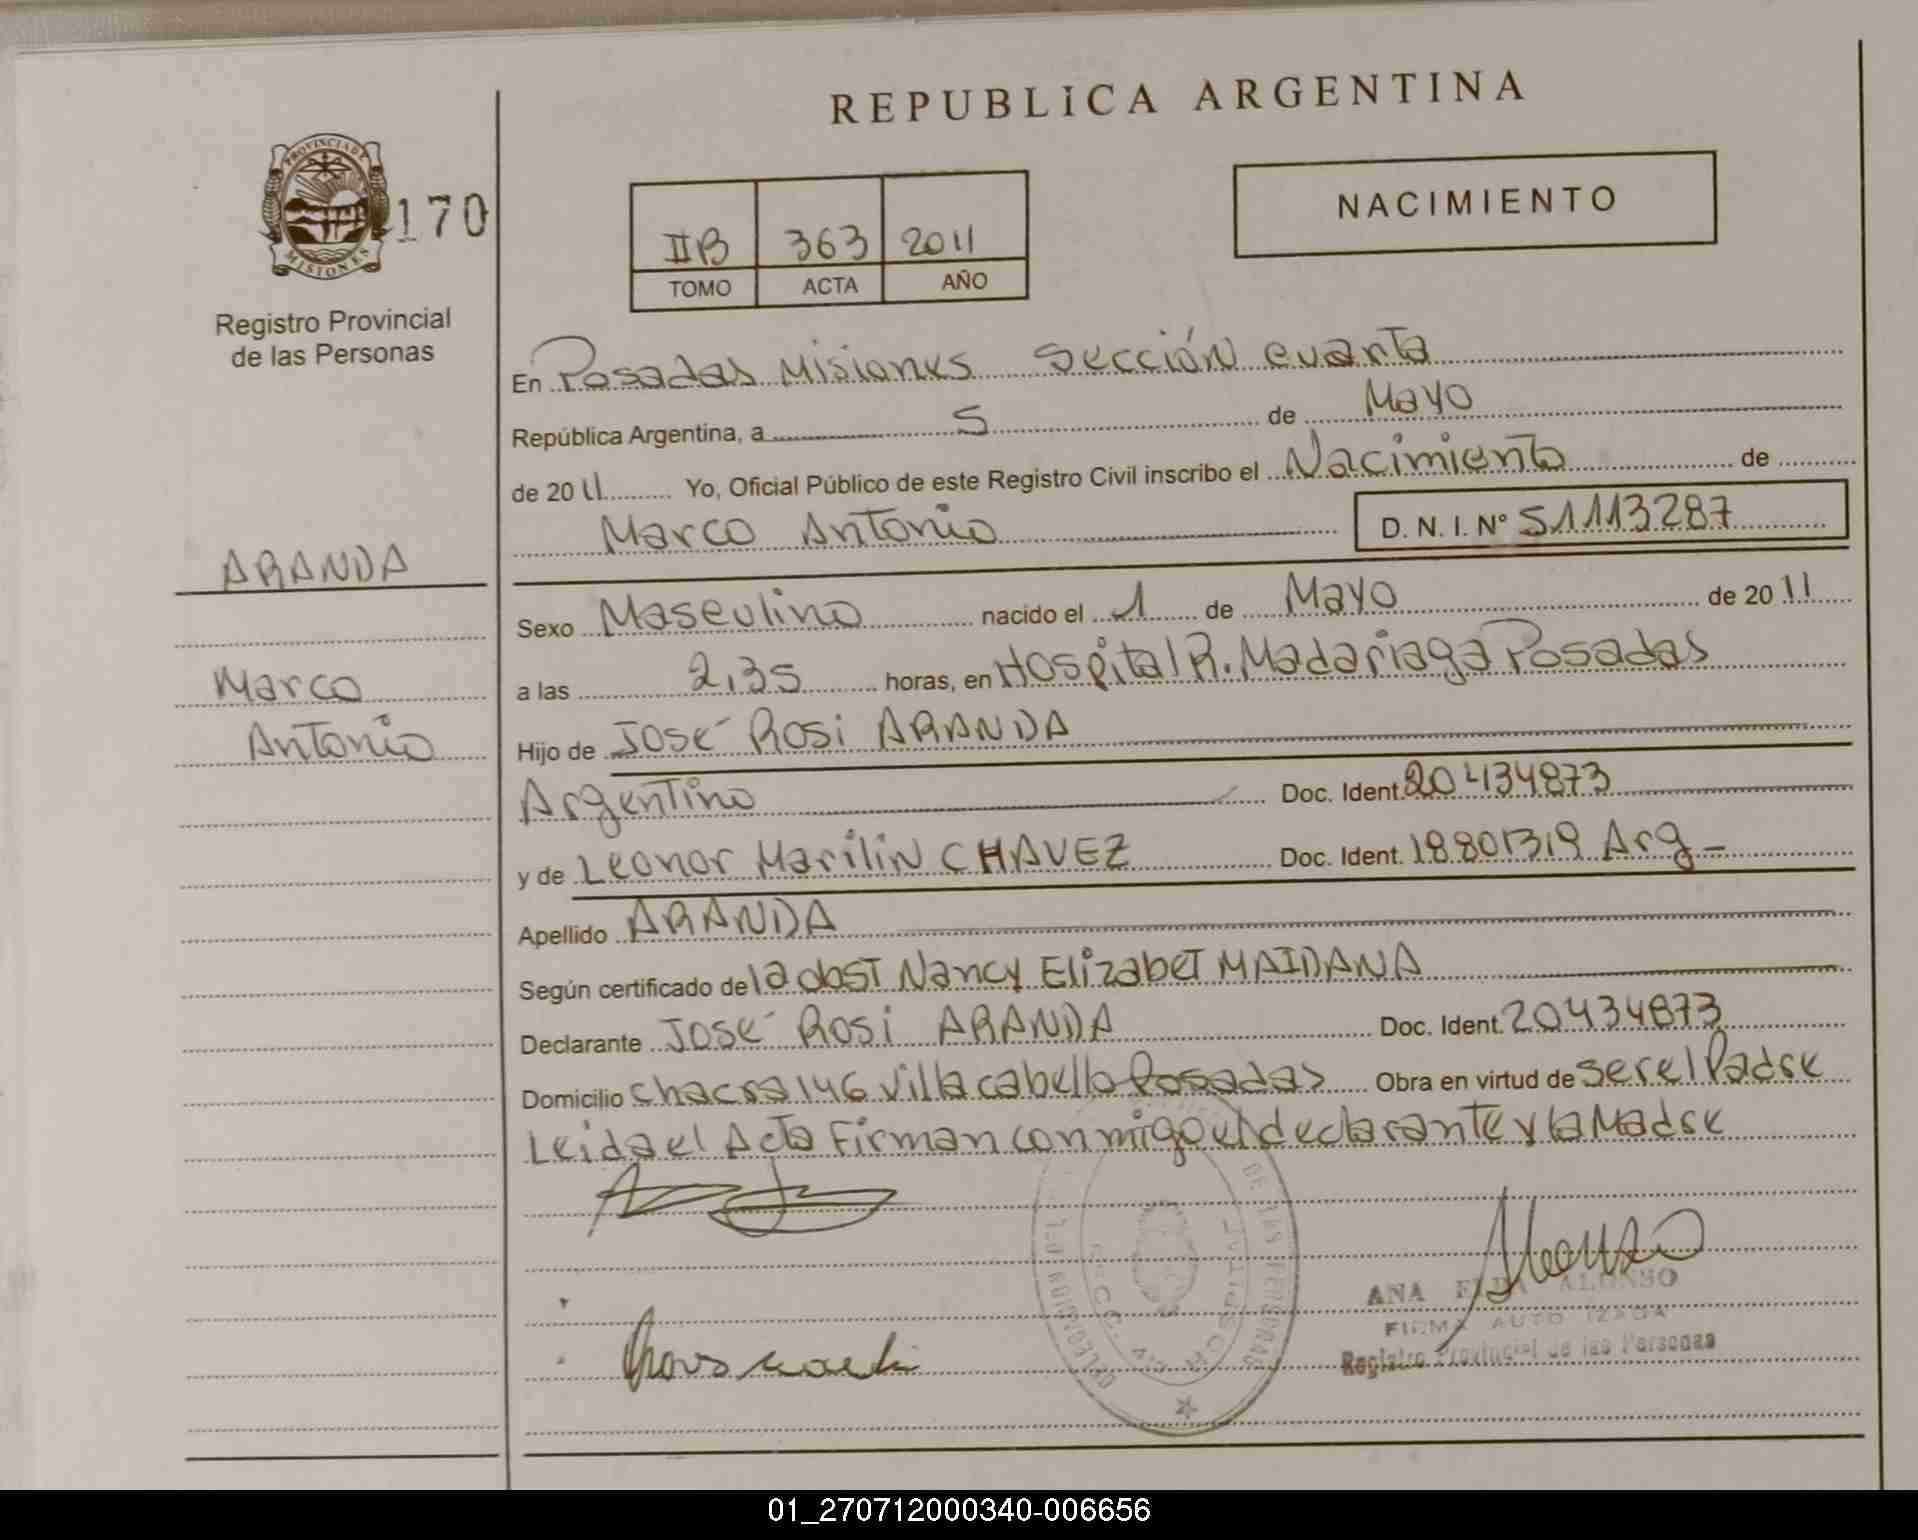 REPUBLICA ARGENTINA
PROVINCIA DE
MISIONES
170
Registro Provincial
de las Personas
IIB 363 2011
TOMO ACTA AÑO
NACIMIENTO
En Posadas Misiones Sección cuarta
República Argentina, a 5 de Mayo
de 2011 Yo, Oficial Público de este Registro Civil inscribo el Nacimiento de
Marco Antonio D. N. I. Nº 51113287
ARANDA
Marco
Antonio
Sexo Masculino nacido el 1 de Mayo de 2011
a las 2,35 horas, en Hospital R. Madariaga Posadas
Hijo de José Rosi ARANDA
Argentino Doc. Ident. 20434873
y de Leonor Marilin CHAVEZ Doc. Ident. 18801319 Arg-
Apellido ARANDA
Según certificado de la obst Nancy Elizabet MAIDANA
Declarante José Rosi ARANDA Doc. Ident. 20434873
Domicilio chacra 146 villa cabello Posadas Obra en virtud de ser el Padre
Leida el Acta Firman conmigo el declarante y la Madre
DE LAS PERSONAS
ANA ALONSO
FIRMA AUTORIZADA
Registro Provincial de las Personas
01_270712000340-006656